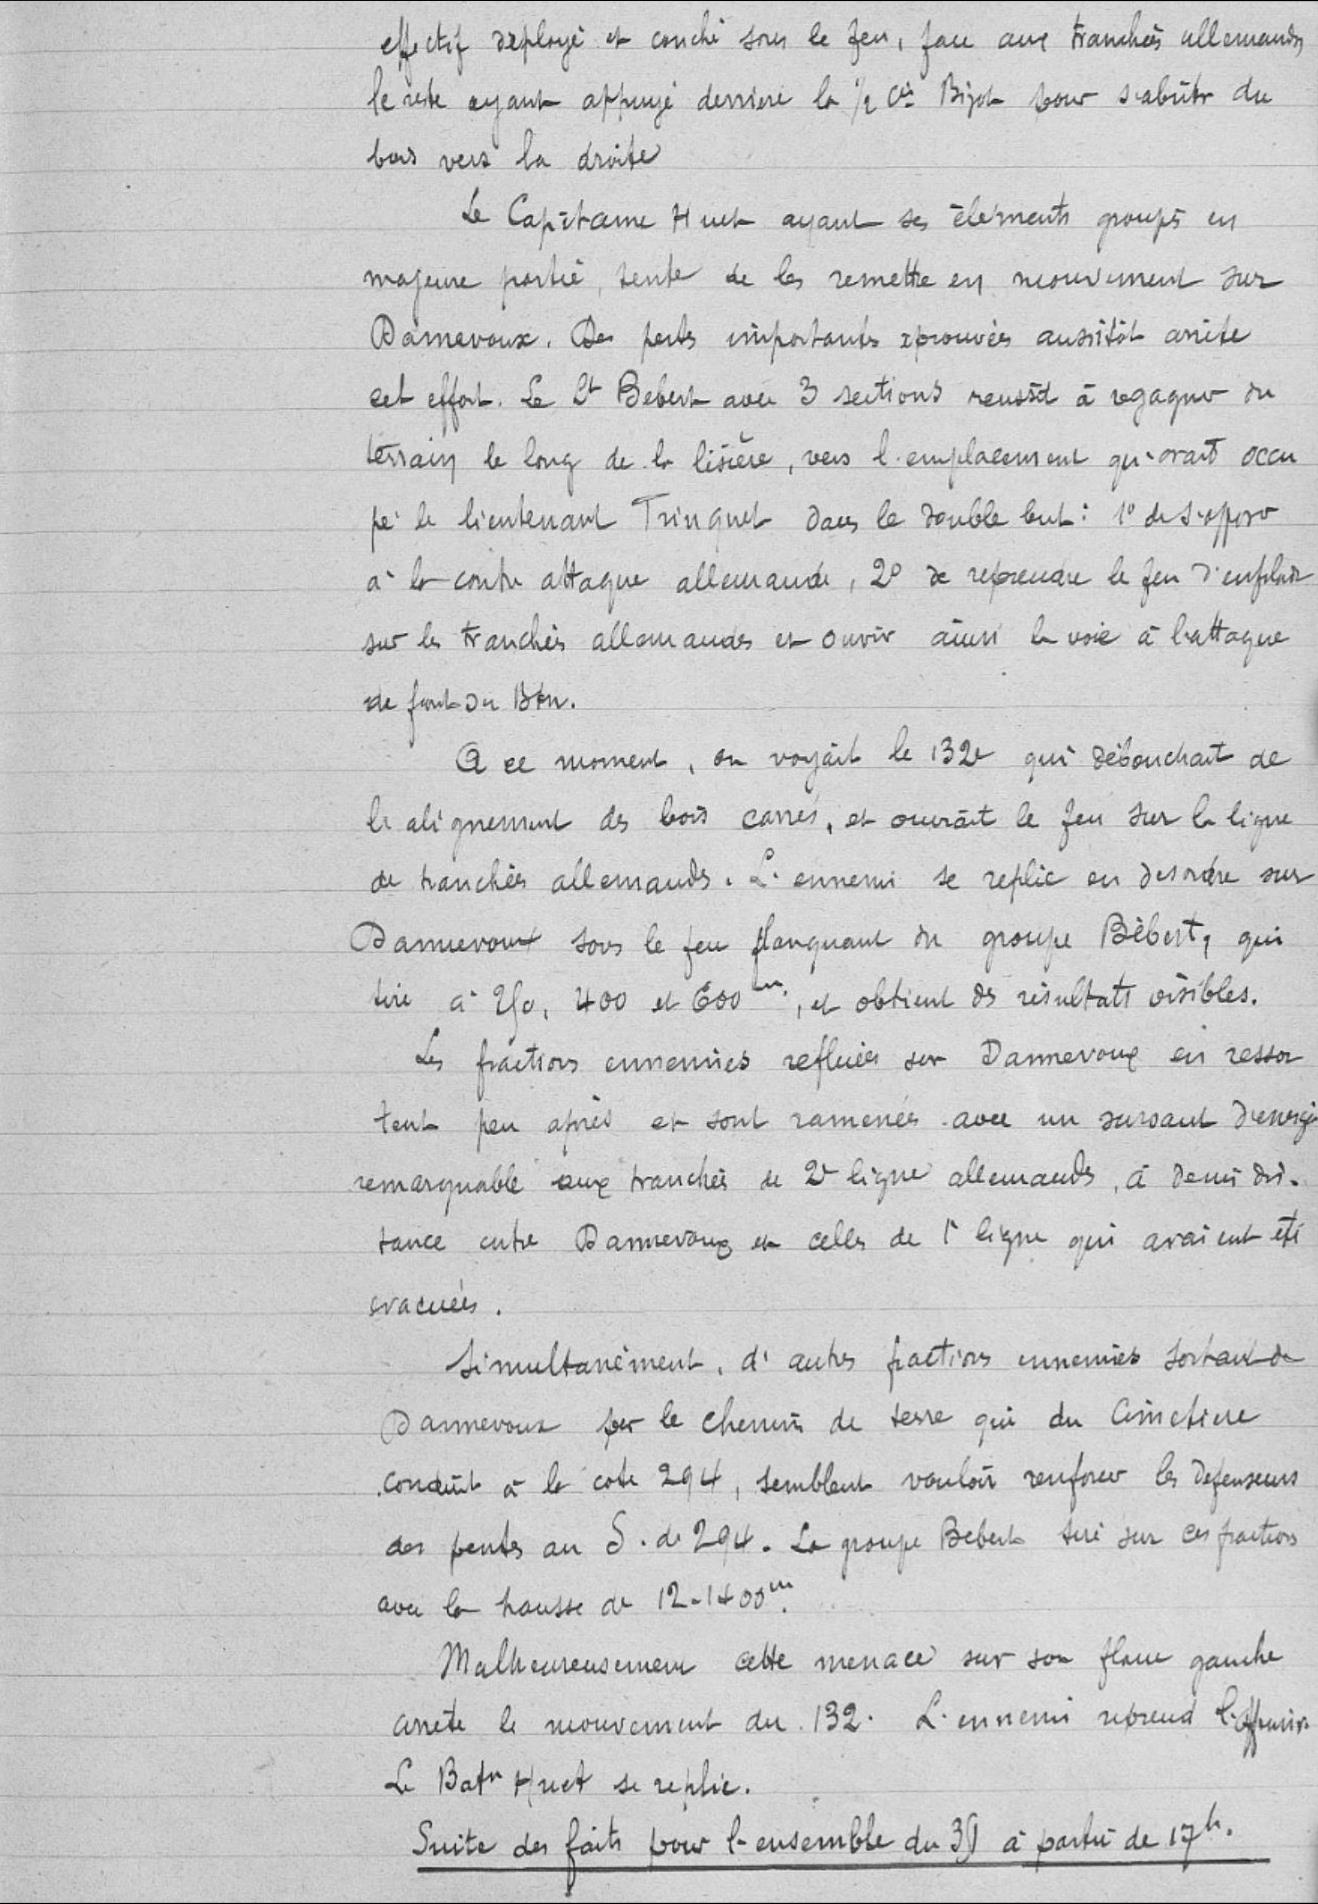 effectif déployé et couché sous le feu, face aux tranchées allemandes
le reste ayant appuyé derrière la 1/2 Cie Bizot pour s'abriter du
bois vers la droite
Le Capitaine Huet ayant ses éléments groupés en
majeure partie, tente de les remettre en mouvement sur
Dannevoux. Des pertes importantes éprouvées aussitôt arrête
cet effort. Le Lt Bebert avec 3 sections reussit à regagner du
terrain le long de la lisière, vers l'emplacement qu'avait occu
pé le lieutenant Trinquet dans le double but : 1° de s'opposer
à la contre attaque allemande, 2° de reprendre le feu d'enfilade
sur les tranchées allemandes et ouvrir ainsi la voie à l'attaque
de front du Btn.
A ce moment, on voyait le 132e qui débouchait de
l'alignement des bois carrés, et ouvrait le feu sur la ligne
de tranchées allemandes. L'ennemi se replie en desordre sur
Dannevoux sous le feu flanquant du groupe Bèbert, qui
tire à 250, 400 et 600m, et obtient des résultats visibles.
Les fractions ennemies refluées sur Dannevoux en ressor
tent peu après et sont ramenées avec un sursaut d'énergie
remarquable aux tranchées de 2e ligne allemandes, à demi dis-
tance entre Dannevoux et celles de 1e ligne qui avaient été
évacuées.
Simultanément, d'autres fractions ennemies sortant de
Dannevoux par le chemin de terre qui du Cimetière
conduit à la cote 294, semblent vouloir renforcer les défenseurs
des pentes au S. de 294. Le groupe Bebert tire sur ces fractions
avec la hausse de 12-1400m.
Malheureusement cette menace sur son flanc gauche
arrête le mouvement du 132. L'ennemi reprend l'offensive.
Le Batn Huet se replie.
Suite des faits pour l'ensemble du à partir de 17h.